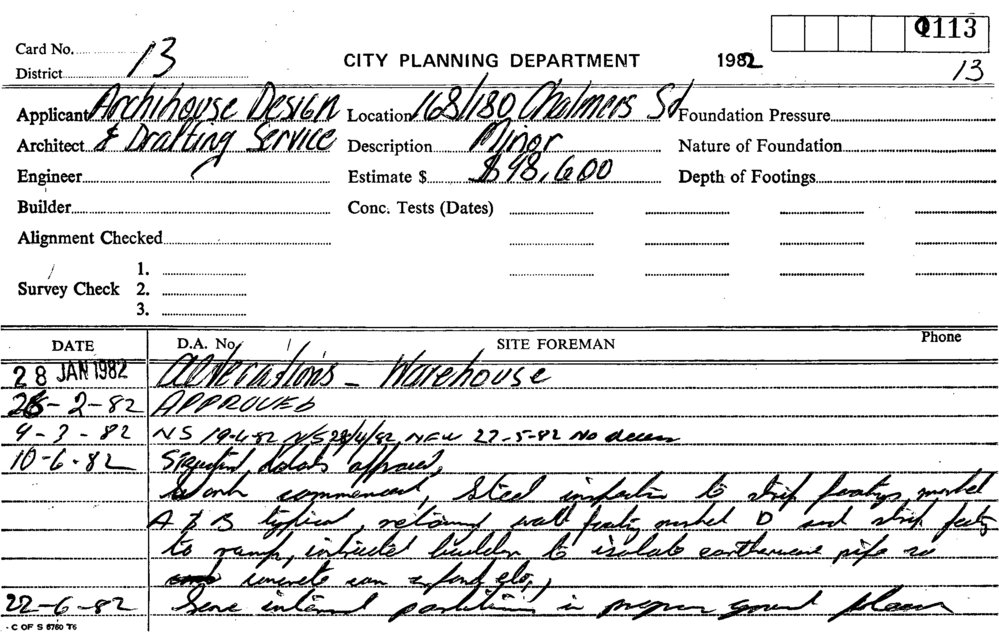 0113
Card No. 13
CITY PLANNING DEPARTMENT
1982
District
13
Applicant Archihouse Design
Location 168/180 Chalmers St
Foundation Pressure
Architect & Drafting Service
Description Minor
Nature of Foundation
Engineer
Estimate $ $98,600
Depth of Footings
Builder
Conc. Tests (Dates)
Alignment Checked
Survey Check
1.
2.
3.
DATE
D.A. No.
SITE FOREMAN
Phone
28 JAN 1982 Alterations - Warehouse
26-2-82 APPROVED
9-3-82 NS 19-4-82 N/S 28/4/82 NEW 27-5-82 No access
10-6-82 Structural details approved,
Work commenced, Steel inspection to strip footings, marked
A & B typical, retaining wall footing marked D and strip footing
to ramp, instructed builder to isolate earthenware pipe so
concrete can
22-6-82 Some internal partitions in progress ground floor
- C OF S 6760 T6